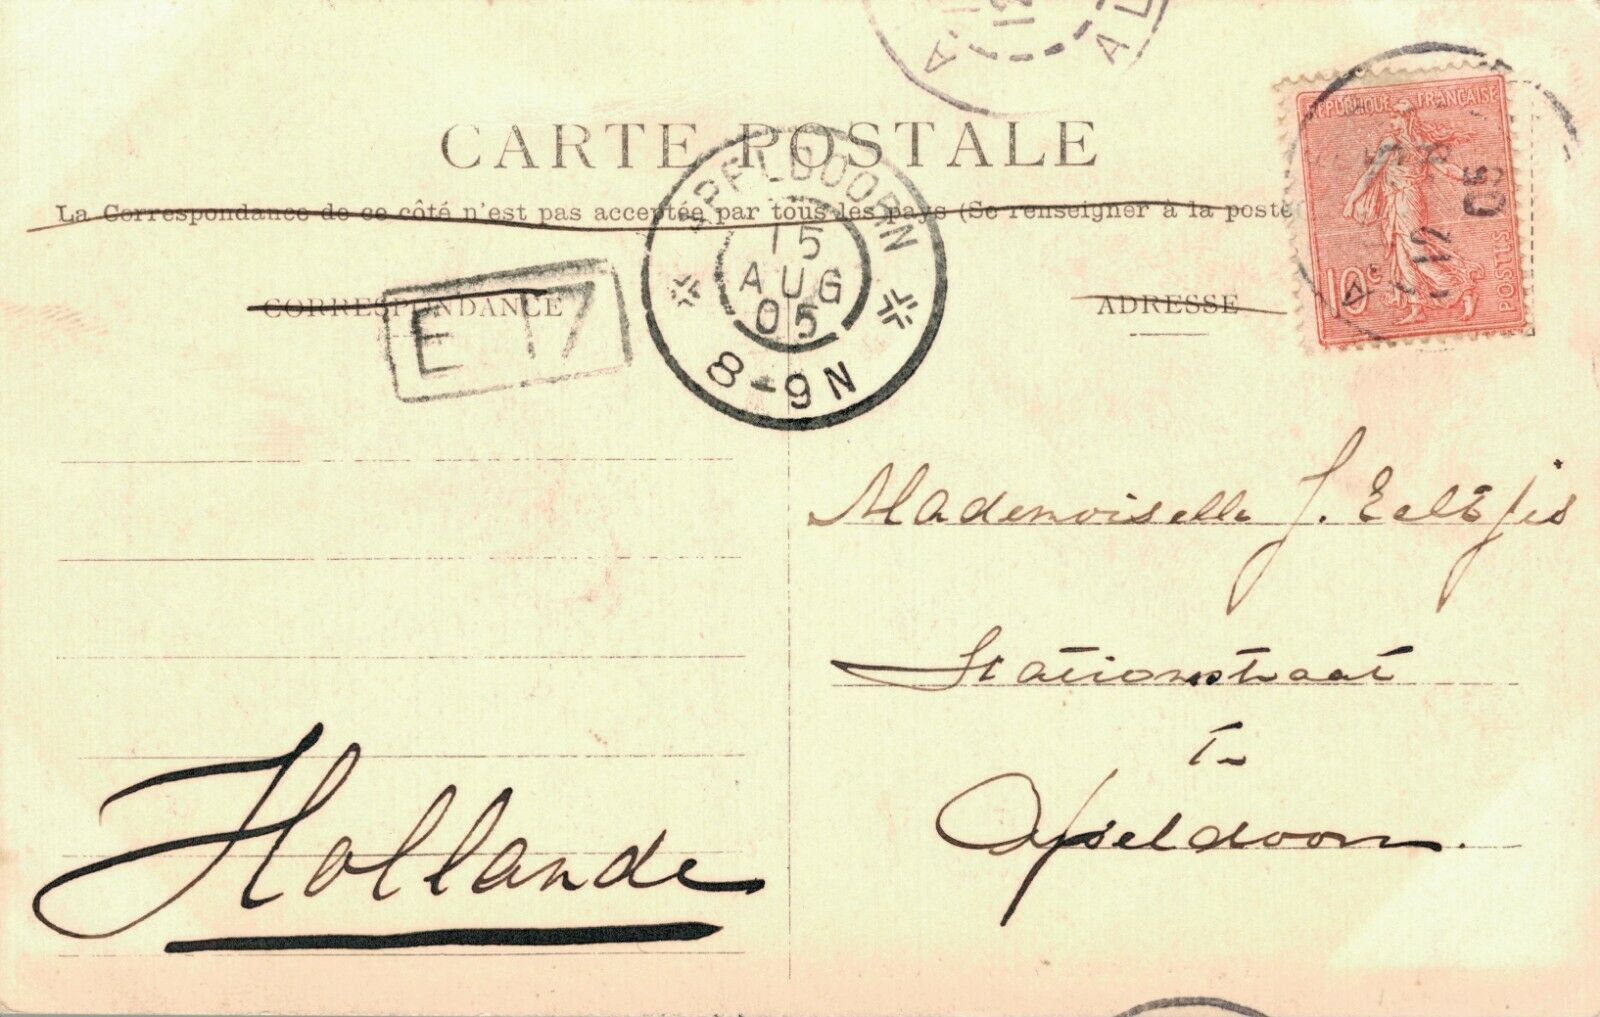 CARTE POSTALE
La Correspondance de ce côté n'est pas acceptée par tous les pays (Se renseigner à la poste
CORRESPONDANCE
ADRESSE
REPUBLIQUE FRANÇAISE
10c
POSTES
12
05
APELDOORN
15
AUG
05
8-9N
E 17
Mademoiselle J.
Stationstraat
Te
Apeldoorn.
Hollande